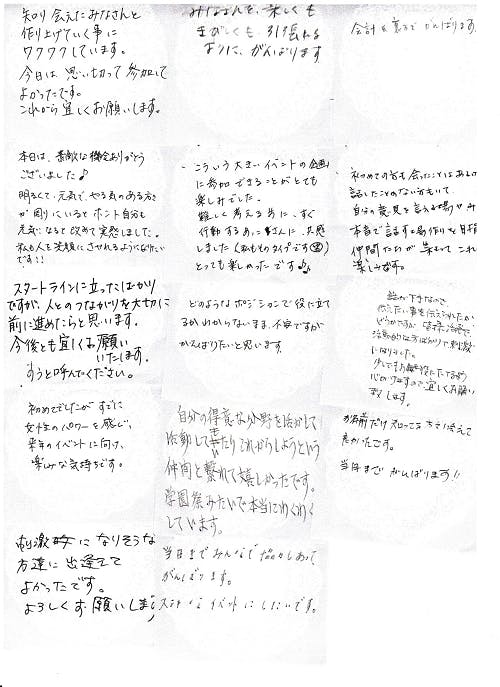 知り会えたみなさんと
作り上げていく事に
ワクワクしています。
今日は思い切って参加して
よかったです。
これから宜しくお願いします。
みなさんを、楽しくも
きびしくも、引け張れる
ように、がんばります
会計も裏方でがんばります
本日は、素敵な機会ありがとう
ございました♪
明るくて、元気で、やる気のある方
が周りにいるとホント自分も
元気になると改めて実感しました。
私も人を笑顔にさせれるようになりたい
です!!
こういう大きいイベントの企画
に参加できることがとても
楽しみでした。
難しく考える前に、すぐ
行動するあに事さんに、共感
しました(私もそのタイプです
とっても楽しかったです♪
初めての方も会ったことはあるの
話したことのない方もいて、
自分の意見を言える場やみ
本音で話すと場作りを目指
仲間たちが集まってこれ
楽しみです。
スタートラインに立ったばかり
ですが、人とのつながりを大切に
前に進めたらと思います。
今後とも宜しくお願い
いたします。
すうと呼んでください。
どのようなポジションで役に立て
るかわからないまま、不安ですが
がんばりたいと思います。
話が下手なので、
伝えたい事を伝えられたか
どうかですが、皆様活発で
活動的な方ばかりで、刺激
になりました。
少しでもお役に立てるよう
心がけますので宜しくお願い
致します。
初めてでしたがすでに
女性のパワーを感じ、
来年のイベントに向け、
楽しみな気持ちです。
自分の得意な分野を活かして
活動してきたりこれからしようという
仲間と繋れて嬉しかったです。
学園祭みたいで本当にわくわく
しています。
名前だけ知ってる方に会えて
良かったです。
当日までがんばります!!
刺激になりそうな
方達に出逢えて
よかったです。
よろしくお願いします
当日までみんなで協力しあって
がんばります。
ステキなイベントにしたいです。